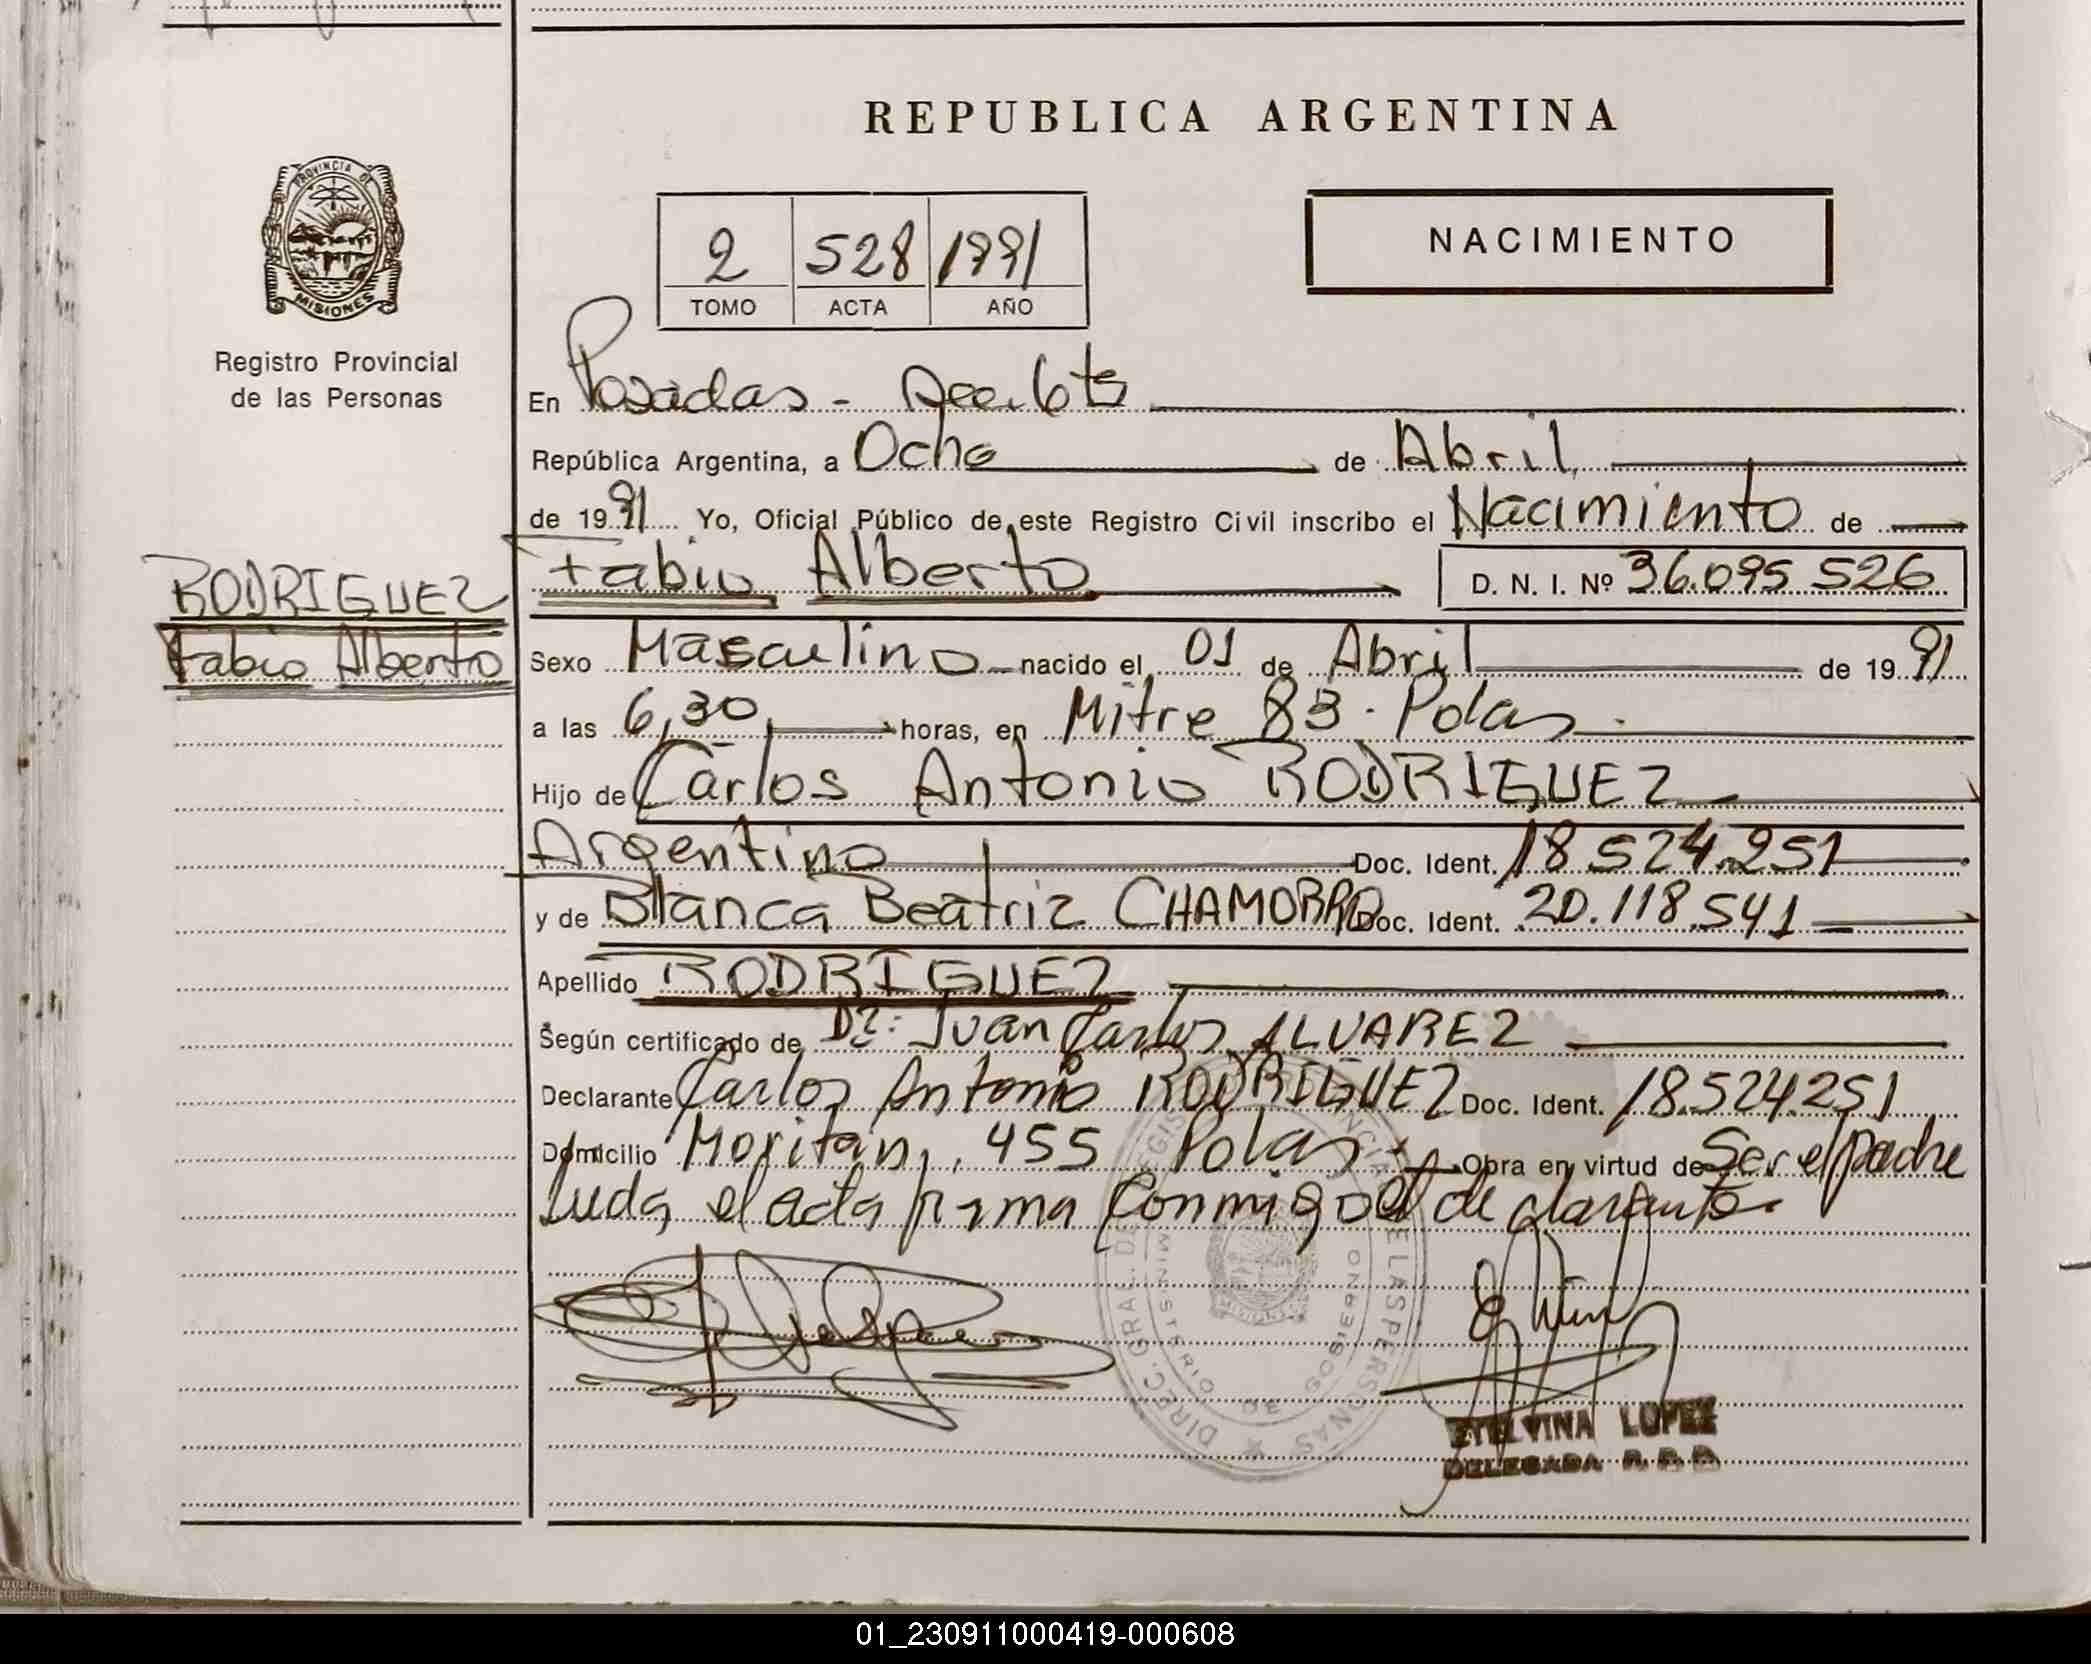 REPUBLICA ARGENTINA
PROVINCIA DE
MISIONES
Registro Provincial
de las Personas
2 528 1991
TOMO ACTA AÑO
NACIMIENTO
En Posadas -
República Argentina, a Ocho de Abril
de 1991 Yo, Oficial Público de este Registro Civil inscribo el Nacimiento de
Fabio Alberto D. N. I. Nº 36.095.526
RODRIGUEZ
Fabio Alberto
Sexo Masculino nacido el 01 de Abril de 1991
a las 6,30 horas, en Mitre 83 - Pdas
Hijo de Carlos Antonio RODRIGUEZ
Argentino Doc. Ident. 18.524.251
y de Blanca Beatriz CHAMORRO Doc. Ident. 20.118.541
Apellido RODRIGUEZ
Según certificado de Dr: Juan Carlos ALVAREZ
Declarante Carlos Antonio RODRIGUEZ Doc. Ident. 18.524.251
Domicilio 455 Pdas Obra en virtud de Ser el padre
Leida el acta firma conmigo el declarante
DIREC. GRAL. DEL REGISTRO PROVINCIAL DE LAS PERSONAS
MINISTERIO DE GOBIERNO
ETELVINA LOPEZ
DELEGADA
01_230911000419-000608